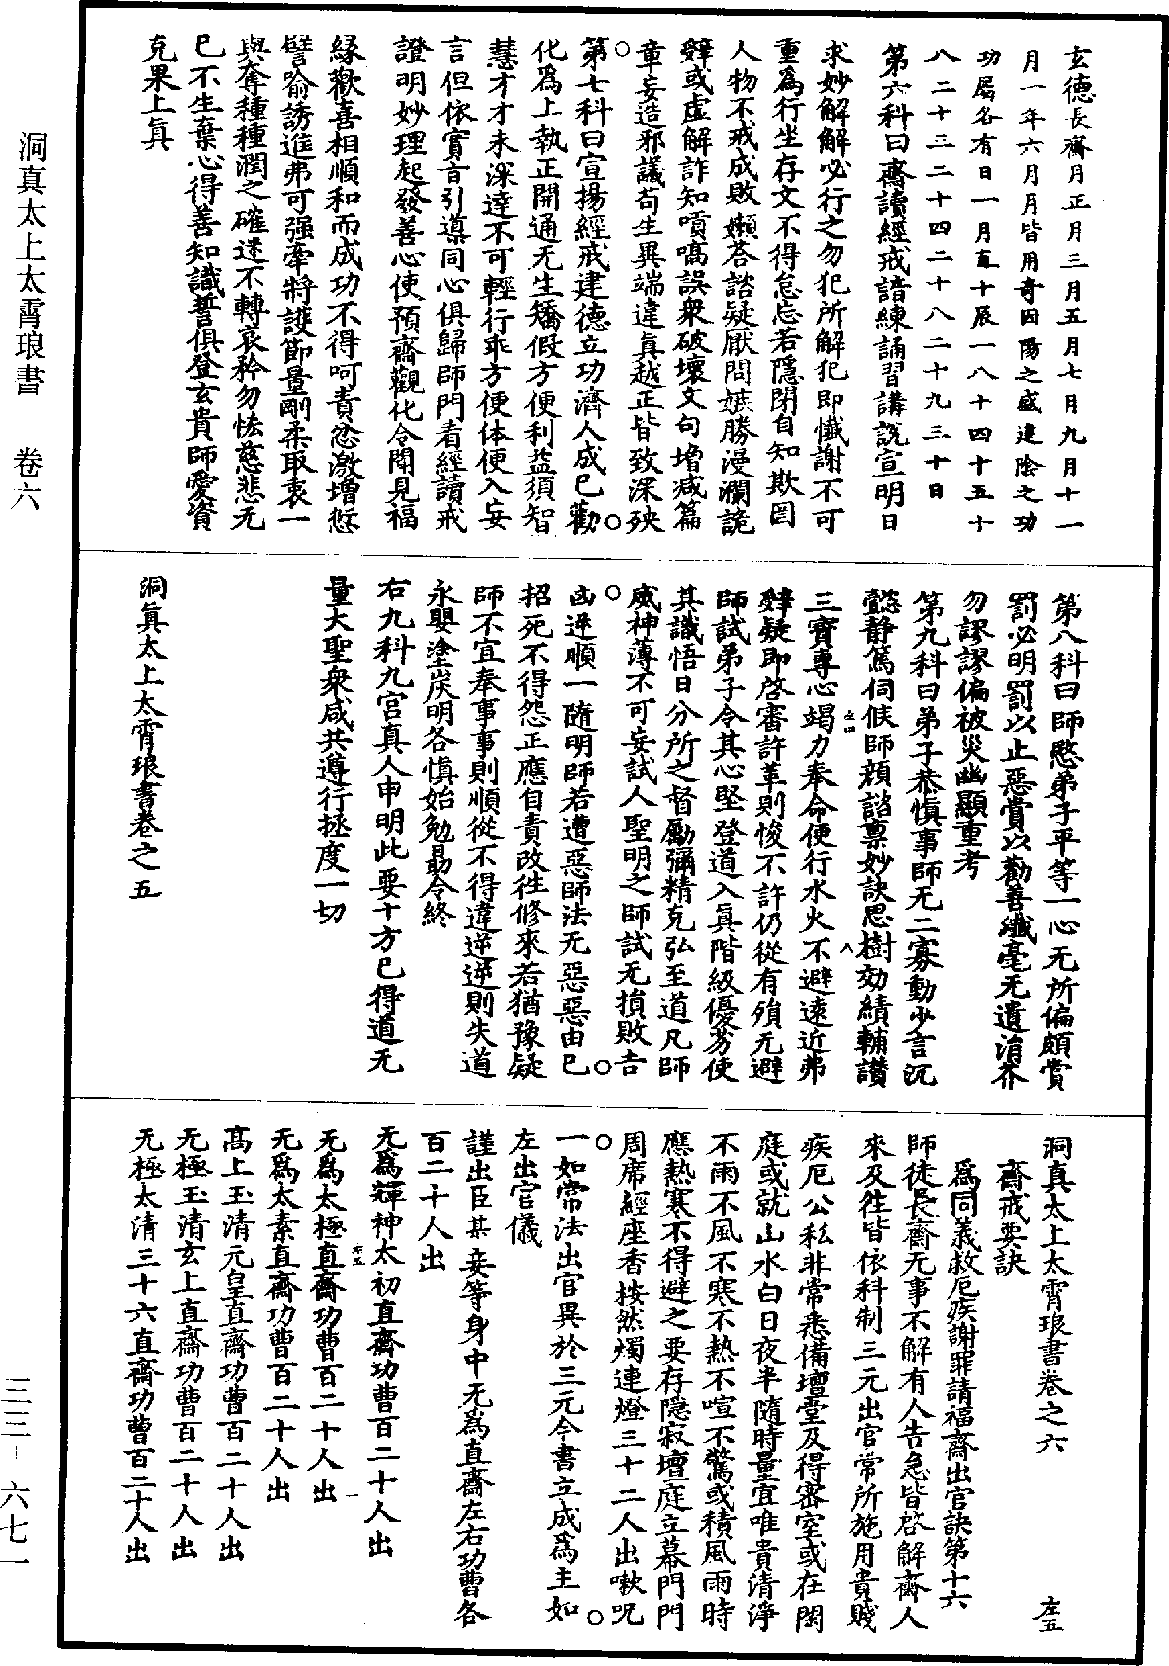 玄德長齋月正月三月五月七月九月十一
月一年六月月皆用奇因陽之盛違陰之功
功屬各有日一月直十辰一八十四十五十
八二十三二十四二十八二十九三十日
第六科曰齋讀經戒諳練誦習講說宣明日
求妙解解必行之勿犯所解犯即懺謝不可
重為行坐存文不得怠忘若隱閉自知欺罔
人物不戒成敗嬾荅諮疑厭問嫉勝漫瀾詭
辭或虛解詐知嘖嗃誤衆破壞文句增減篇
章妄造邪議苟生異端違真越正皆致深殃
第七科曰宣揚經戒建德立功濟人成已勸
化爲上執正開通无生矯假方便利益須智
慧才才未深達不可輕行乖方便体便入妄
言但依實音引導同心俱歸師門看經讀戒
證明妙理起發善心使預齋觀化令聞見福
緣歡喜相順和而成功不得呵責忿激增愆
譬喻誘進弗可强牽將護節量剛柔取衷一
與奪種種潤之確迷不轉哀矜勿怯慈悲无
已不生棄心得善知識誓俱登玄貴師愛資
克果上真
第八科曰師愍弟子平等一心无所偏頗賞
罰必明罰以止惡賞以勸善纖毫无遺涓芥
勿謬謬偏被災幽顯重考
第九科曰弟子恭慎事師无二寡動少言沉
懿静篤伺候師顔諮稟妙訣思樹効績輔讚
三寶專心竭力奉命便行水火不避遠近弗
辭疑即啓審許革則悛不許仍從有殞无避
師試弟子令其心堅登道入真階級優劣使
其識悟日分所之督勵彌精克弘至道凡師
威神薄不可妄試人聖明之師試无損敗吉
凶逆順一隨明師若遭惡師法无惡惡由已
招死不得怨正應自責改徃修來若猶豫疑
師不宜奉事事則順從不得違逆逆則失道
永嬰塗炭明各慎始勉勗令終
右九科九宫真人申明此要十方已得道无
量大聖衆咸共遵行拯度一切
洞真太上太霄琅書卷之五
洞真太上太霄琅書卷之六
左五
齋戒要訣
爲同義救厄疾謝罪請福齋出官訣第十六
師徒長齋无事不解有人告急皆啓解齋人
來及往皆依科制三元出官常所施用貴賤
疾厄公私非常悉備壇堂及得審室或在閑
庭或就山水白日夜半隨時量宜唯貴清淨
不雨不風不寒不熱不喧不驚或積風雨時
應熱寒不得避之要存隱寂壇庭立幕門門
周席經座香按然燭連燈三十二人出嗽呪
一如常法出官異於三元今書立成爲主如
左出官儀
謹出臣某妾等身中无爲直齋左右功曹各
百二十人出
无爲輝神太初直齋功曹百二十人出
无爲太極直齋功曹百二十人出
无爲太素直齋功曹百二十人出
高上玉清元皇直齋功曹百二十人出
无極玉清玄上直齋功曹百二十人出
无極太清三十六直齋功曹百二十人出
洞真太上太霄琅書 卷六
三三-六七一